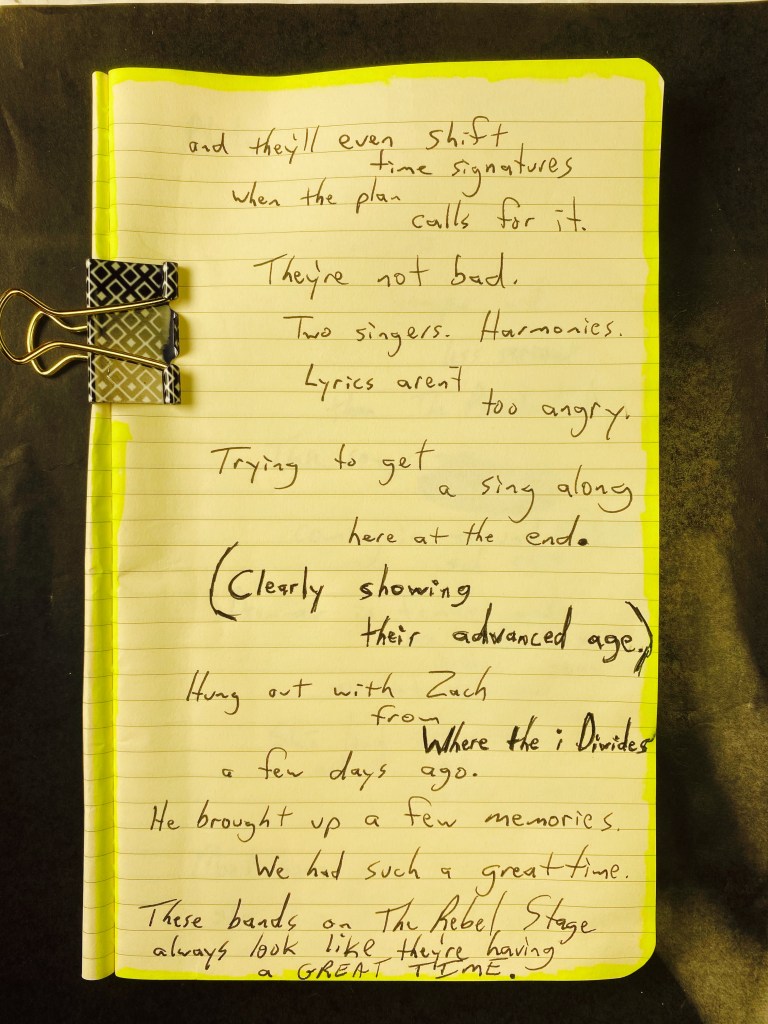 and they'll even shift
time signatures
when the plan
calls for it.
They're not bad.
Two singers. Harmonies.
Lyrics aren't
too angry.
Trying to get
a sing along
here at the end.
(Clearly showing
their advanced age.)
Hung out with Zach
from
Where the i Divides
a few days ago.
He brought up a few memories.
We had such a great time.
These bands on The Rebel Stage
always look like they're having
a GREAT TIME.